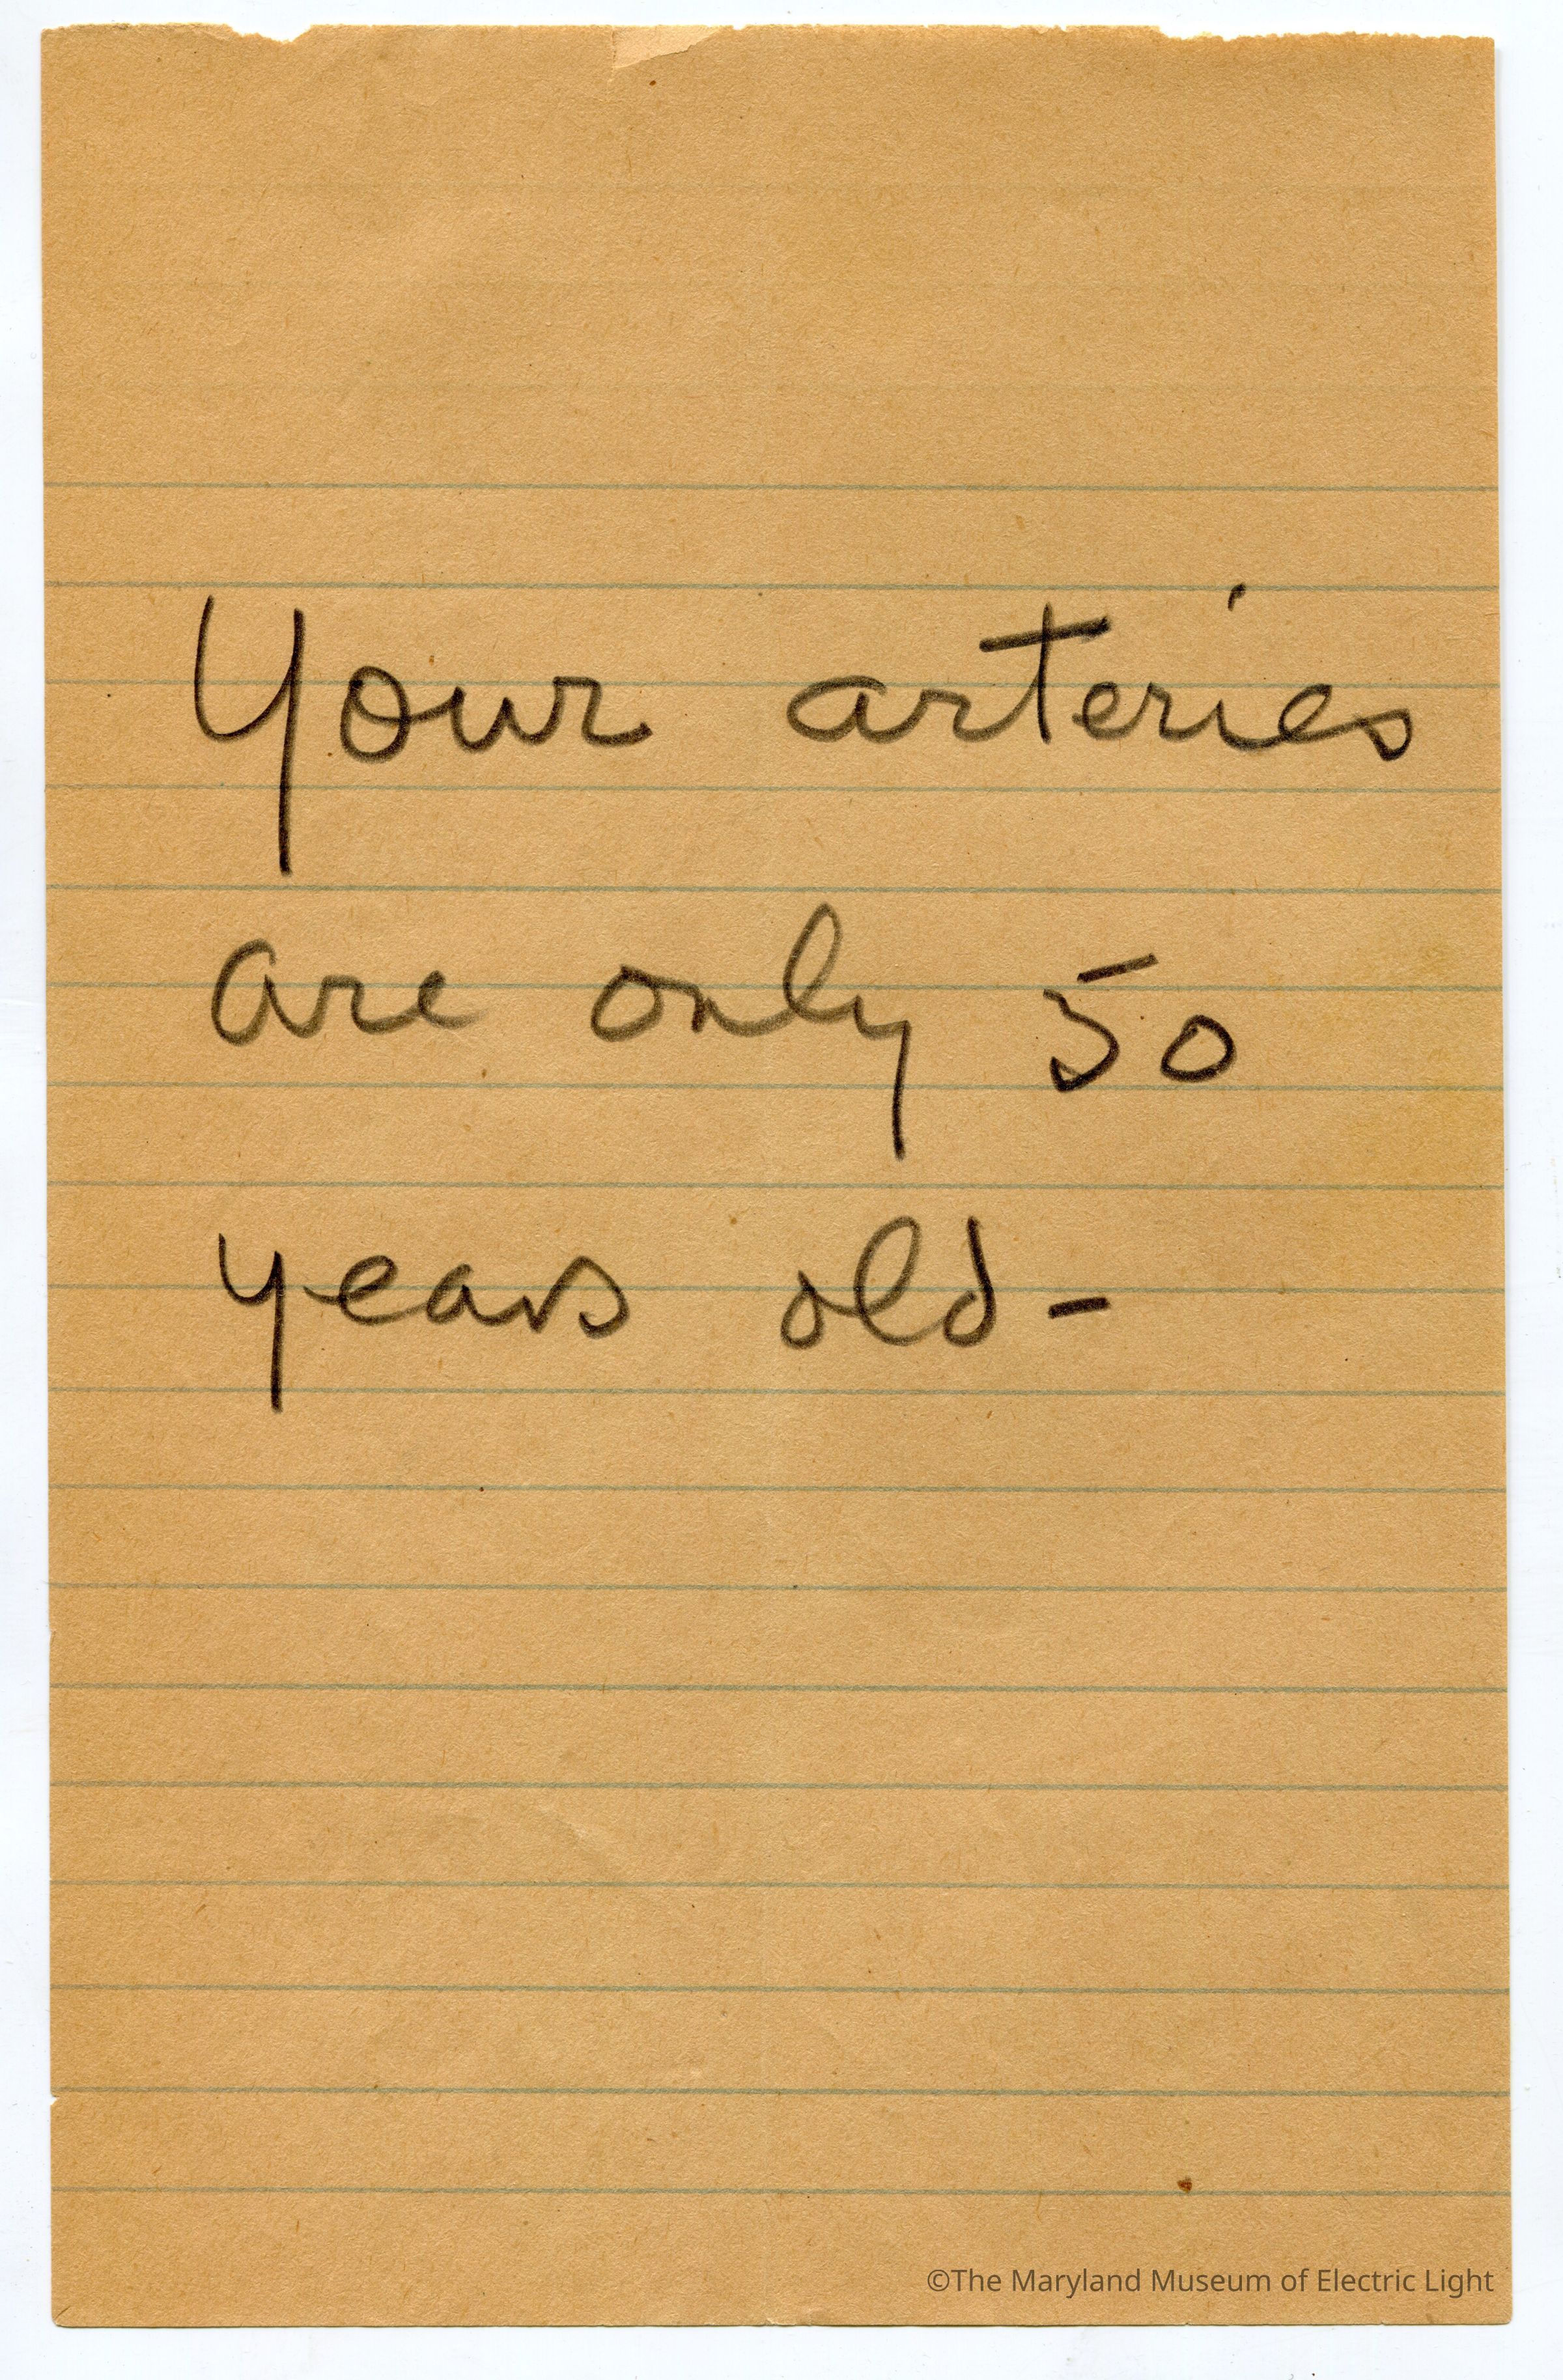 Your arteries
are only 50
years old-
©The Maryland Museum of Electric Light